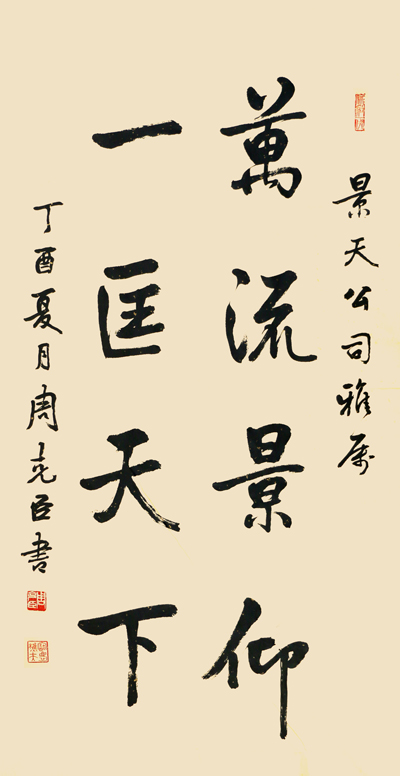 景天公司雅属
萬流景仰
一匡天下
丁酉夏月周克臣書